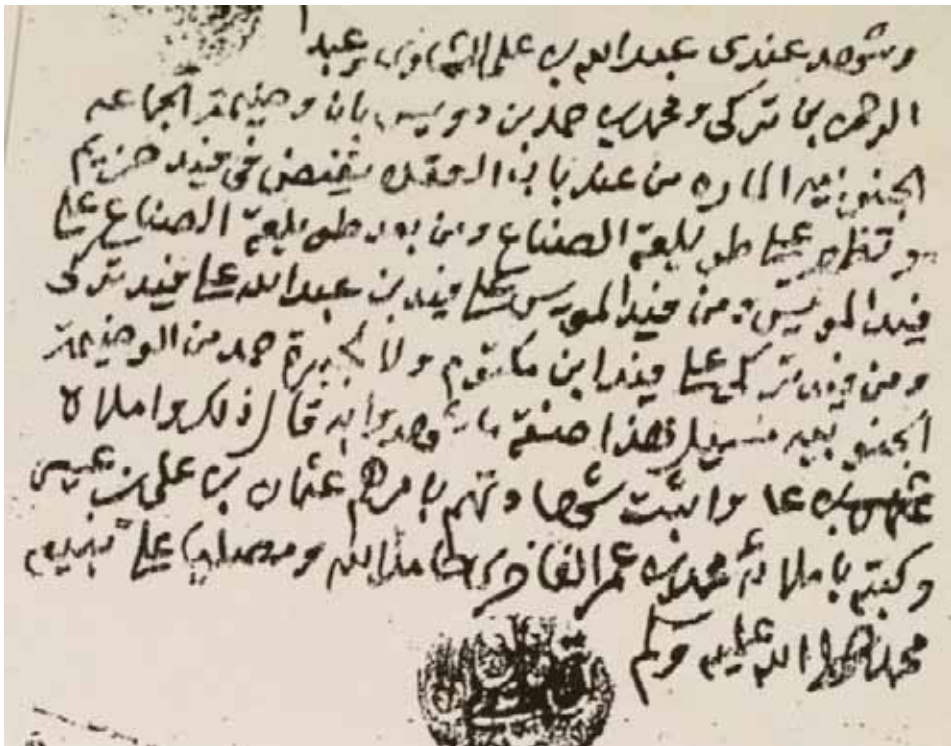 وشهد عندي عبدالله بن علي وعبد
الرحمن بن تركي ومحمد بن حمد بن دويس بان وضيمة الجماعه
الجنوبيه الماره من عند باب العقده في فيد
وتظهر على طويلعة الصناع ومن بعد طويلعة الصناع على
فيد المويس ومن فيد المويس على فيد بن عبدالله على فيد تركي
ومن فيد تركي على فيد ابن مكتوم ولا حمد من الوضيمة
الجنوبيه مسيل هذا صفة ما شهدوا به قال ذلك واملاه
واثبت شهادتهم بامره عثمان بن علي بن عيسى
وكتبه باملائه محمد بن عمر الفاخري حامدا لله ومصليا على نبيه
محمد صلى الله عليه وسلم